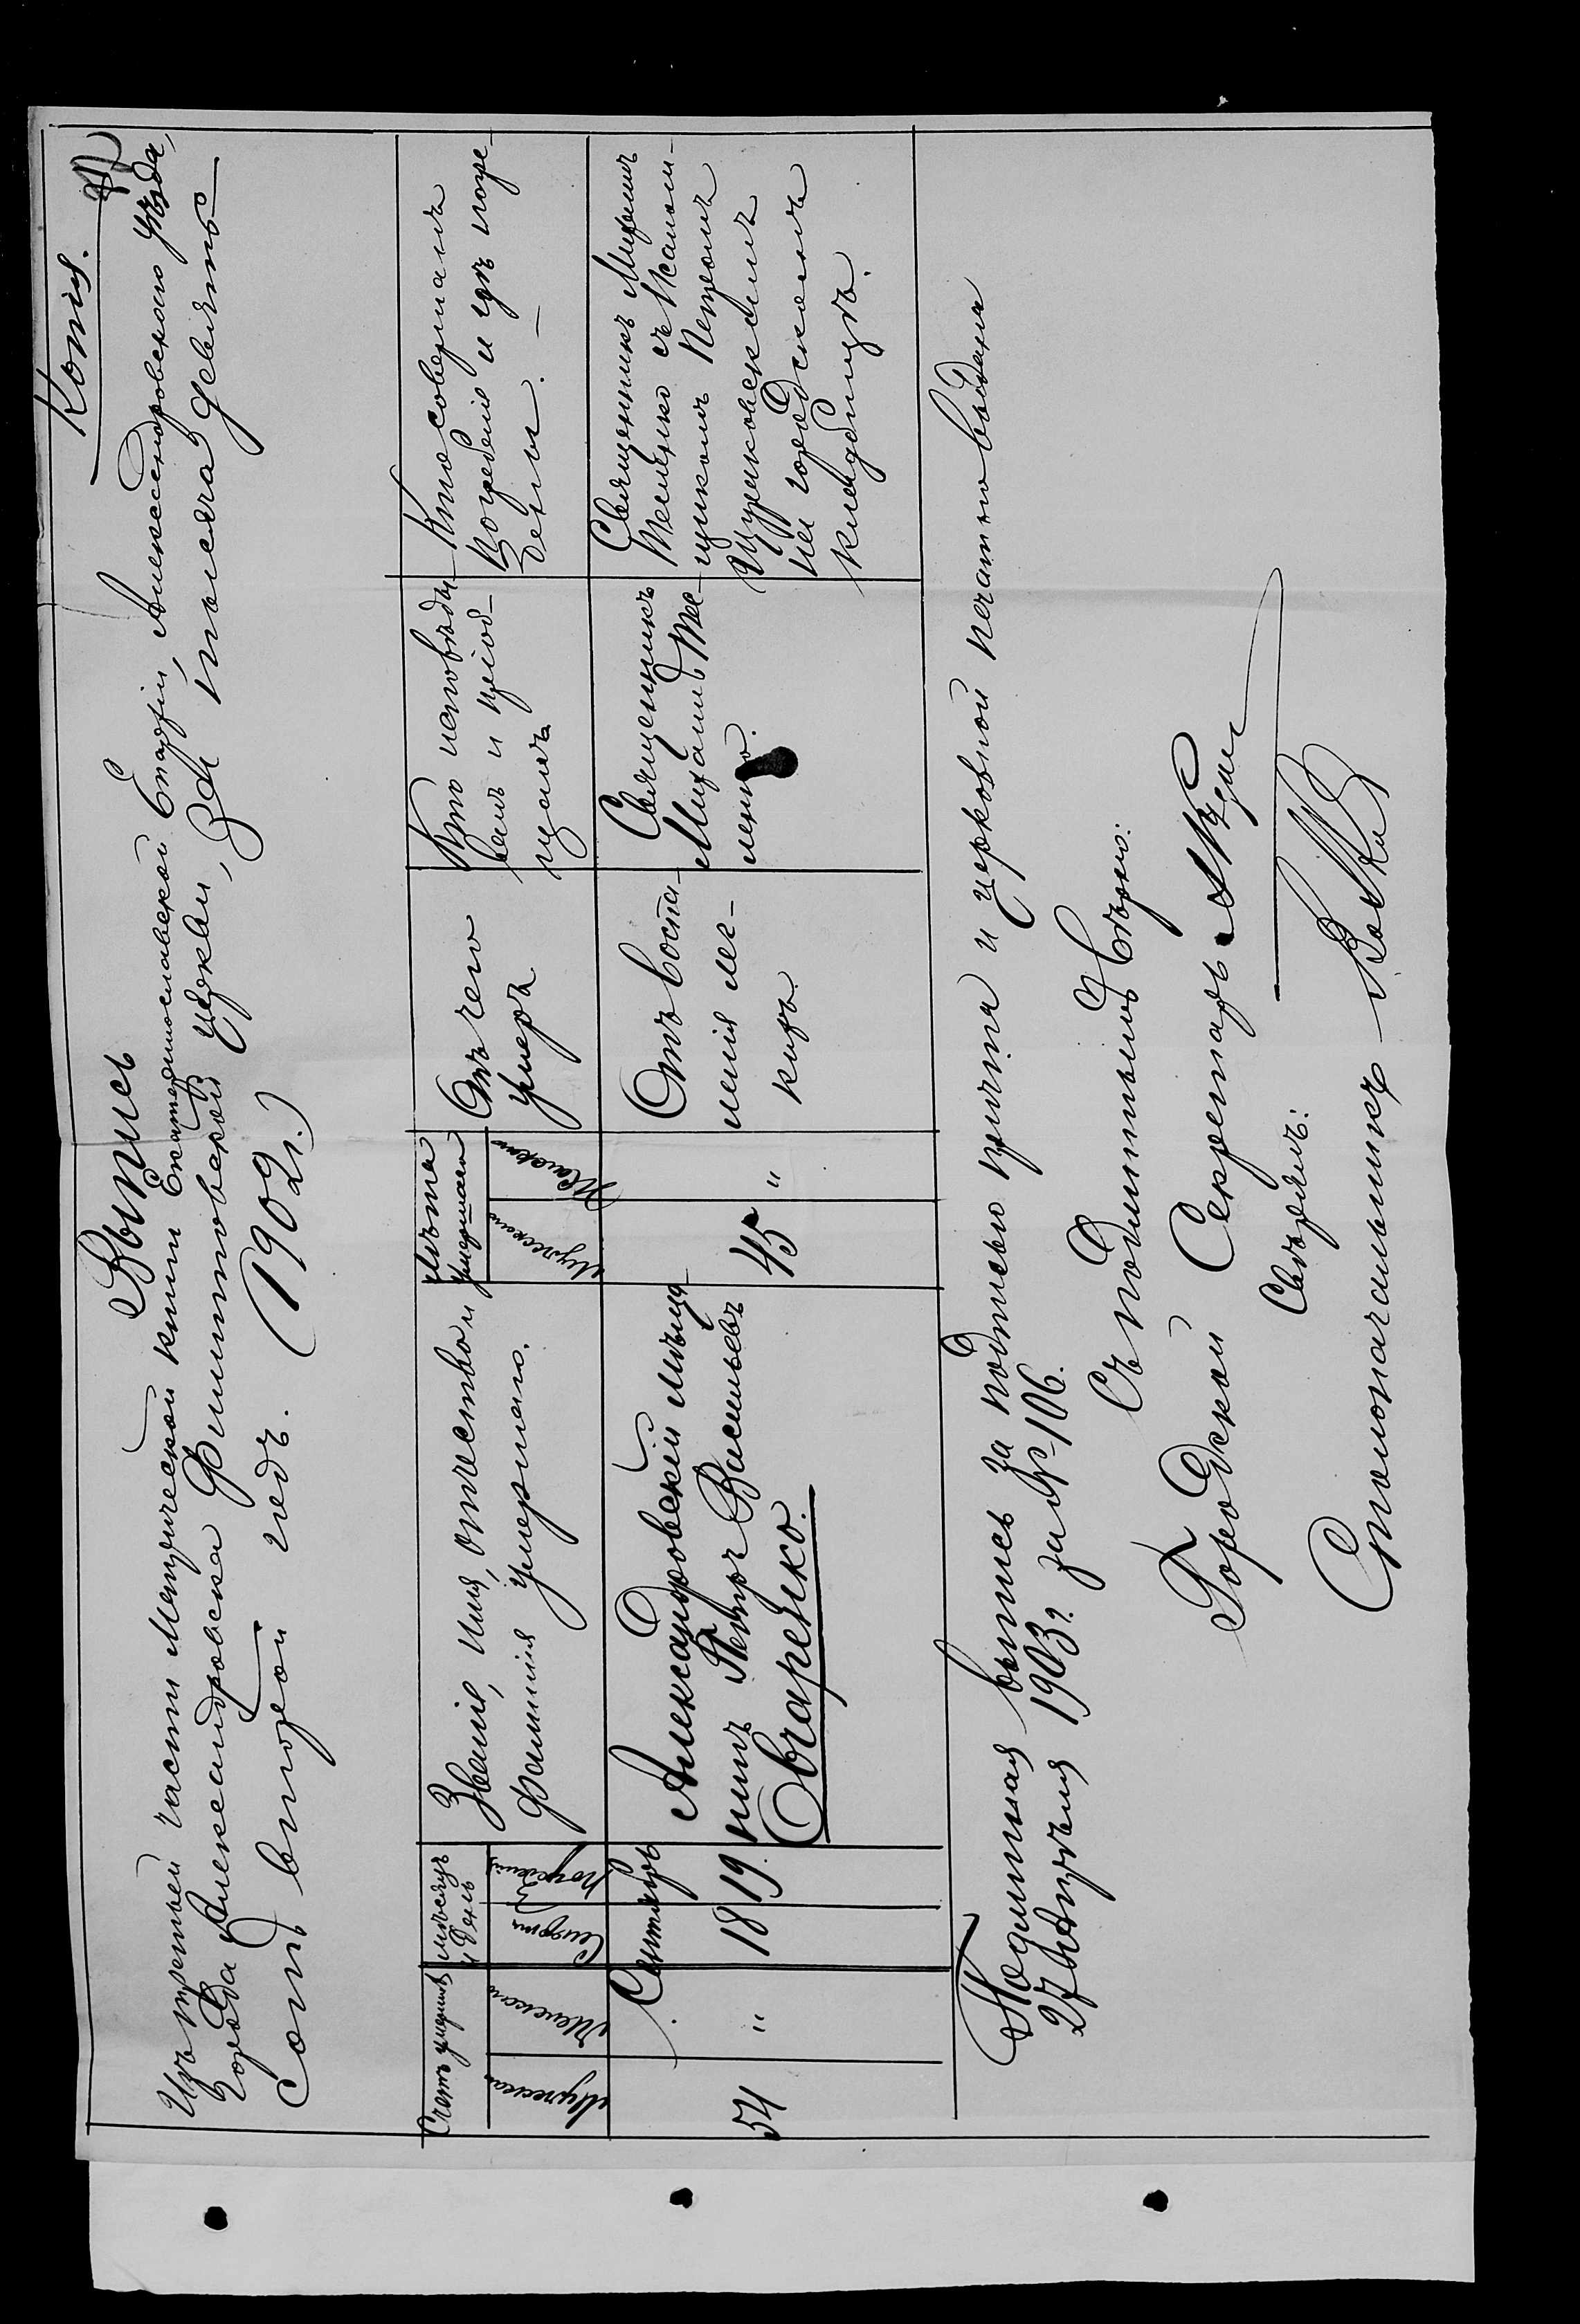 Копія.
Выпись
Изъ третьей части Метрической книги Екатеринославской Епархіи, Александровскаго уѣзда,
города Александровска Филипповской церкви, За тысяча девятьсотъ второй годъ. (1902 г.)
Счетъ умершихъ
Мужеска
Женска
Мѣсяцъ и день
Смерти
Погребенія
Званіе, имя, отчество и
фамилія умершаго.
Лѣта
умершаго
Мужеска
Женска
Отъ чего
умеръ
Кто исповѣды-
валъ и пріоб-
щалъ
Кто совершалъ
погребеніе и гдѣ погре-
бены.
54
"
Сентябрь
18
19
Александровскій мѣща-
нинъ Петръ Васильевъ
Овчаренко.
45
"
Отъ воспа-
ленія лег-
кихъ.
Священникъ
Михаилъ Те-
ленко.
Священникъ Михаилъ
Теленко съ Псалом-
щикомъ Петромъ
на городскомъ
кладбищѣ.
Подлинная выпись за подписью причта и церковной печатью выдана
27 Января 1903 г. за № 106.
Съ подлиннымъ вѣрно:
Городской Секретарь
Свѣрялъ:
Столоначальникъ